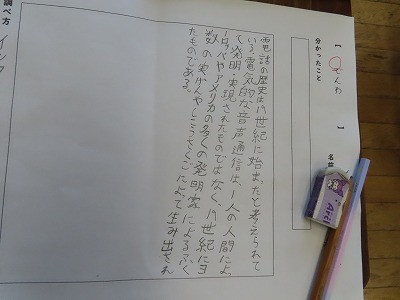 【でんわ】
名前
分かったこと
電話の歴史は19世紀に始まったと考えられて
いる。電気的な音声通信は、1人の人間によ
って発明・実現されたものではなく、19世紀にヨ
ーロッパやアメリカの多くの発明家によるふく
数の実けんやしこうさくごによって生み出され
たものである。
調べ方
インタ